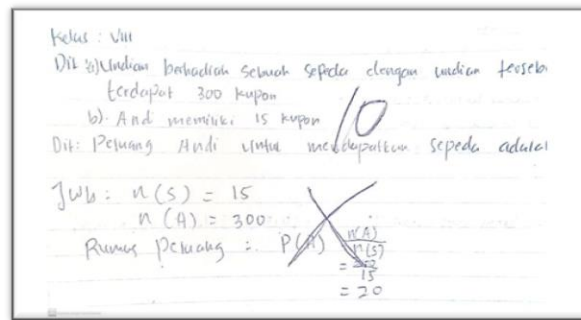 Kelas : VIII
Dik : a) Undian berhadiah sebuah sepeda dengan undian tersebu
terdapat 300 kupon
b). Andi memiliki 15 kupon
10
Dit : Peluang Andi untuk mendapatkan sepeda adalal
Jwb : n(S) = 15
n(A) = 300
Rumus Peluang : P(A) n(A)
n(S)
= 300
15
= 20